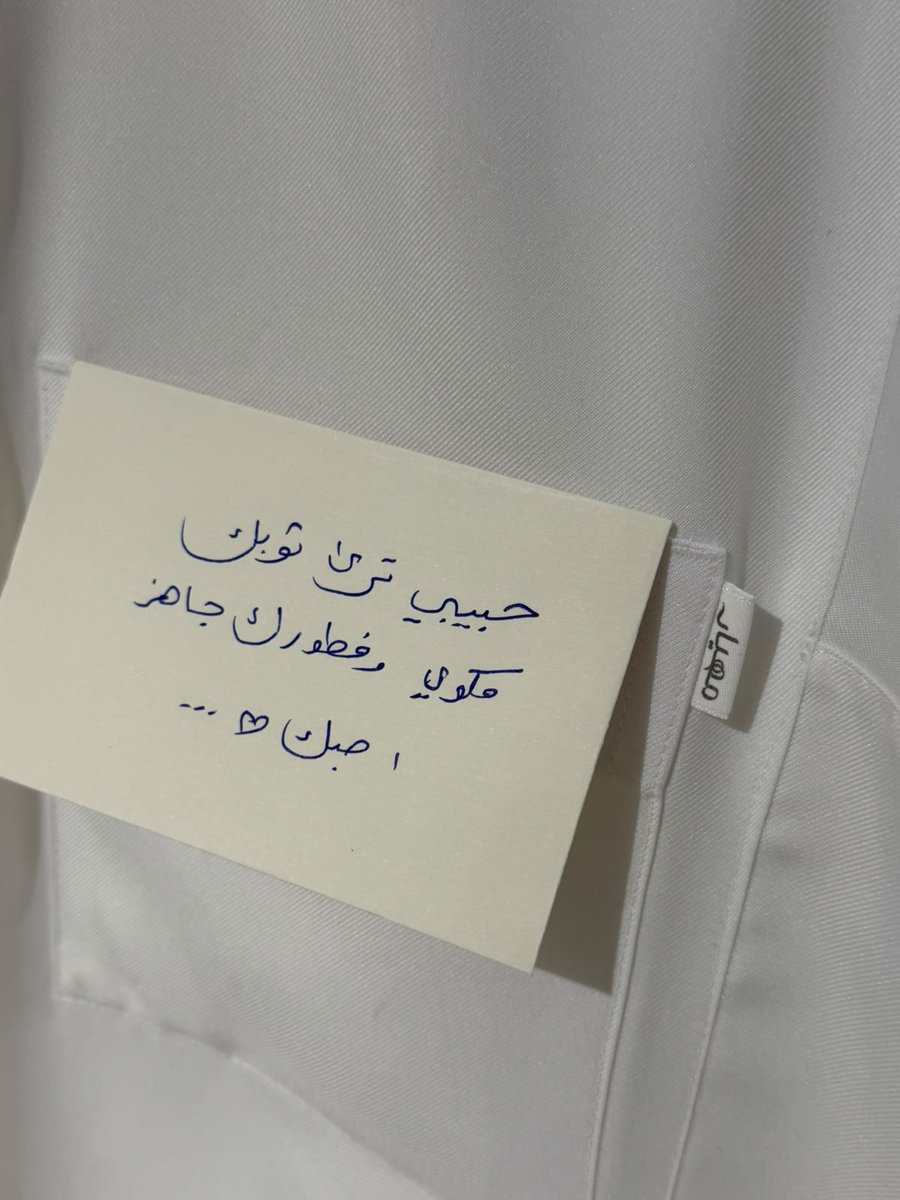 حبيبي ترى ثوبك
مكوي وفطورك جاهز
احبك ♡ ...
مهيار